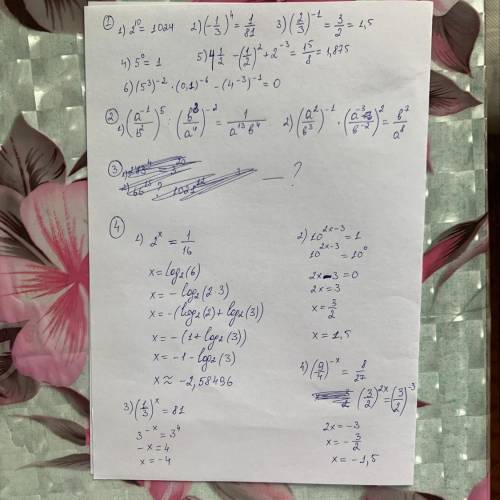 ① 1) 2¹⁰ = 1024 2) (-1/3)⁴ = 1/81 3) (2/3)⁻¹ = 3/2 = 1,5
4) 5⁰ = 1 5) 4 1/2 - (1/2)² + 2⁻³ = 15/8 = 1,875
6) (5³)⁻² · (0,1)⁻⁶ - (4⁻³)⁻¹ = 0
② 1) (a⁻¹/b²)⁵ : (b³/a⁴)⁻² = 1/(a¹³b⁴) 2) (a²/b³)⁻¹ · (a⁻³/b⁻²)² = b⁷/a⁸
③ — ?
④ 1) 2ˣ = 1/16
x = log₂(6)
x = - log₂(2·3)
x = -(log₂(2) + log₂(3))
x = -(1 + log₂(3))
x = -1 - log₂(3)
x ≈ -2,58496
2) 10²ˣ⁻³ = 1
10²ˣ⁻³ = 10⁰
2x - 3 = 0
2x = 3
x = 3/2
x = 1,5
3) (1/3)ˣ = 81
3⁻ˣ = 3⁴
-x = 4
x = -4
4) (9/4)⁻ˣ = 8/27
(3/2)²ˣ = (3/2)⁻³
2x = -3
x = -3/2
x = -1,5